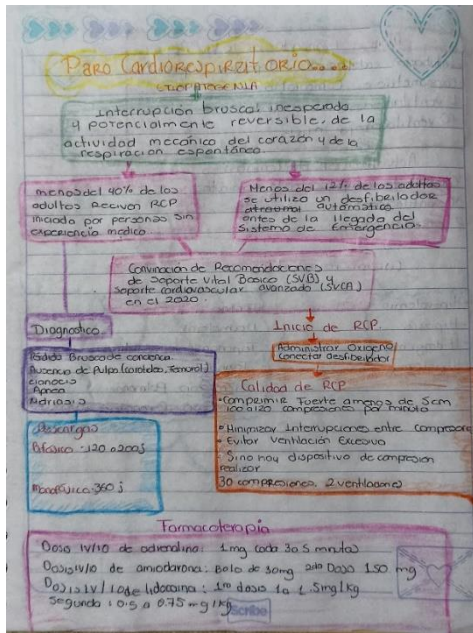 Paro Cardiorespiratorio....
ETIOPATOGENIA
Interrupción brusca, inesperada
y potencialmente reversible, de la
actividad mecánica del corazón y de la
respiración espontánea.
menos del 40% de los
adultos Reciven RCP
iniciada por personas sin
experiencia medica
Menos del 12% de los adultos
se utilizo un desfibrilador
automatico
antes de la llegada del
Sistema de Emergencia
Convinación de Recomendaciones
de Soporte Vital Basico (SVB) y
soporte cardiovascular avanzado (SVCA)
en el 2020.
Diagnostico
Pédida Brusca de conciencia
Ausencia de Pulso (carotideo, Femoral)
cianocis
Apnea
Midriasis
Descargas
Bifasico: 120 a 200 j
Monofásico: 360 j
Inicio de RCP
Administrar Oxigeno
Conectar desfibrilador
Calidad de RCP
• Comprimir Fuerte a menos de 5cm
100 a 120 compresiones por minuto
• Minimizar Interrupciones entre compresione
• Evitar Ventilación Excesiva
• Si no hay dispositivo de compresion
realizar
30 compresiones, 2 ventilaciones
Farmacoterapia
Dosis IV/IO de adrenalina: 1mg cada 3 a 5 minutos
Dosis IV/IO de amiodarona: Bolo de 30mg 2da Dosis 150 mg
Dosis IV/IO de lidocaina: 1ra dosis 1 a 1.5mg/kg
Segunda: 0.5 a 0.75 mg/kg
Scribe